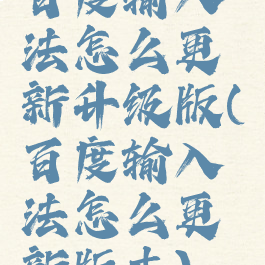 百度输入
法怎么更
新升级版(
百度输入
法怎么更
新版本)